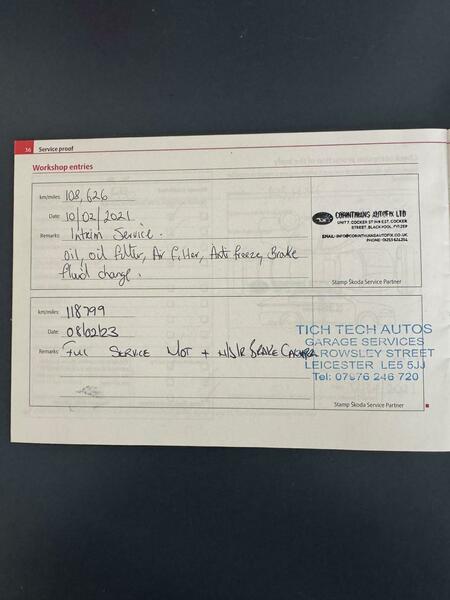 36 Service proof
Workshop entries
km/miles 108,626
Date 10/02/2021
Remarks Interim Service.
Oil, oil filter, Air Filter, Anti freeze, Brake
fluid change.
CORINTHIANS AUTOFIX LTD
UNIT 7, COCKER ST IND EST, COCKER
STREET, BLACKPOOL, FY1 2EP
EMAIL: INFO@CORINTHIANSAUTOFIX.CO.UK
PHONE: 01253 624254
Stamp Škoda Service Partner
km/miles 118799
Date 08/02/23
Remarks Full Service MOT + N/S/R BRAKE
TICH TECH AUTOS
GARAGE SERVICES
ROWSLEY STREET
LEICESTER LE5 5JJ
Tel: 07976 246 720
Stamp Škoda Service Partner